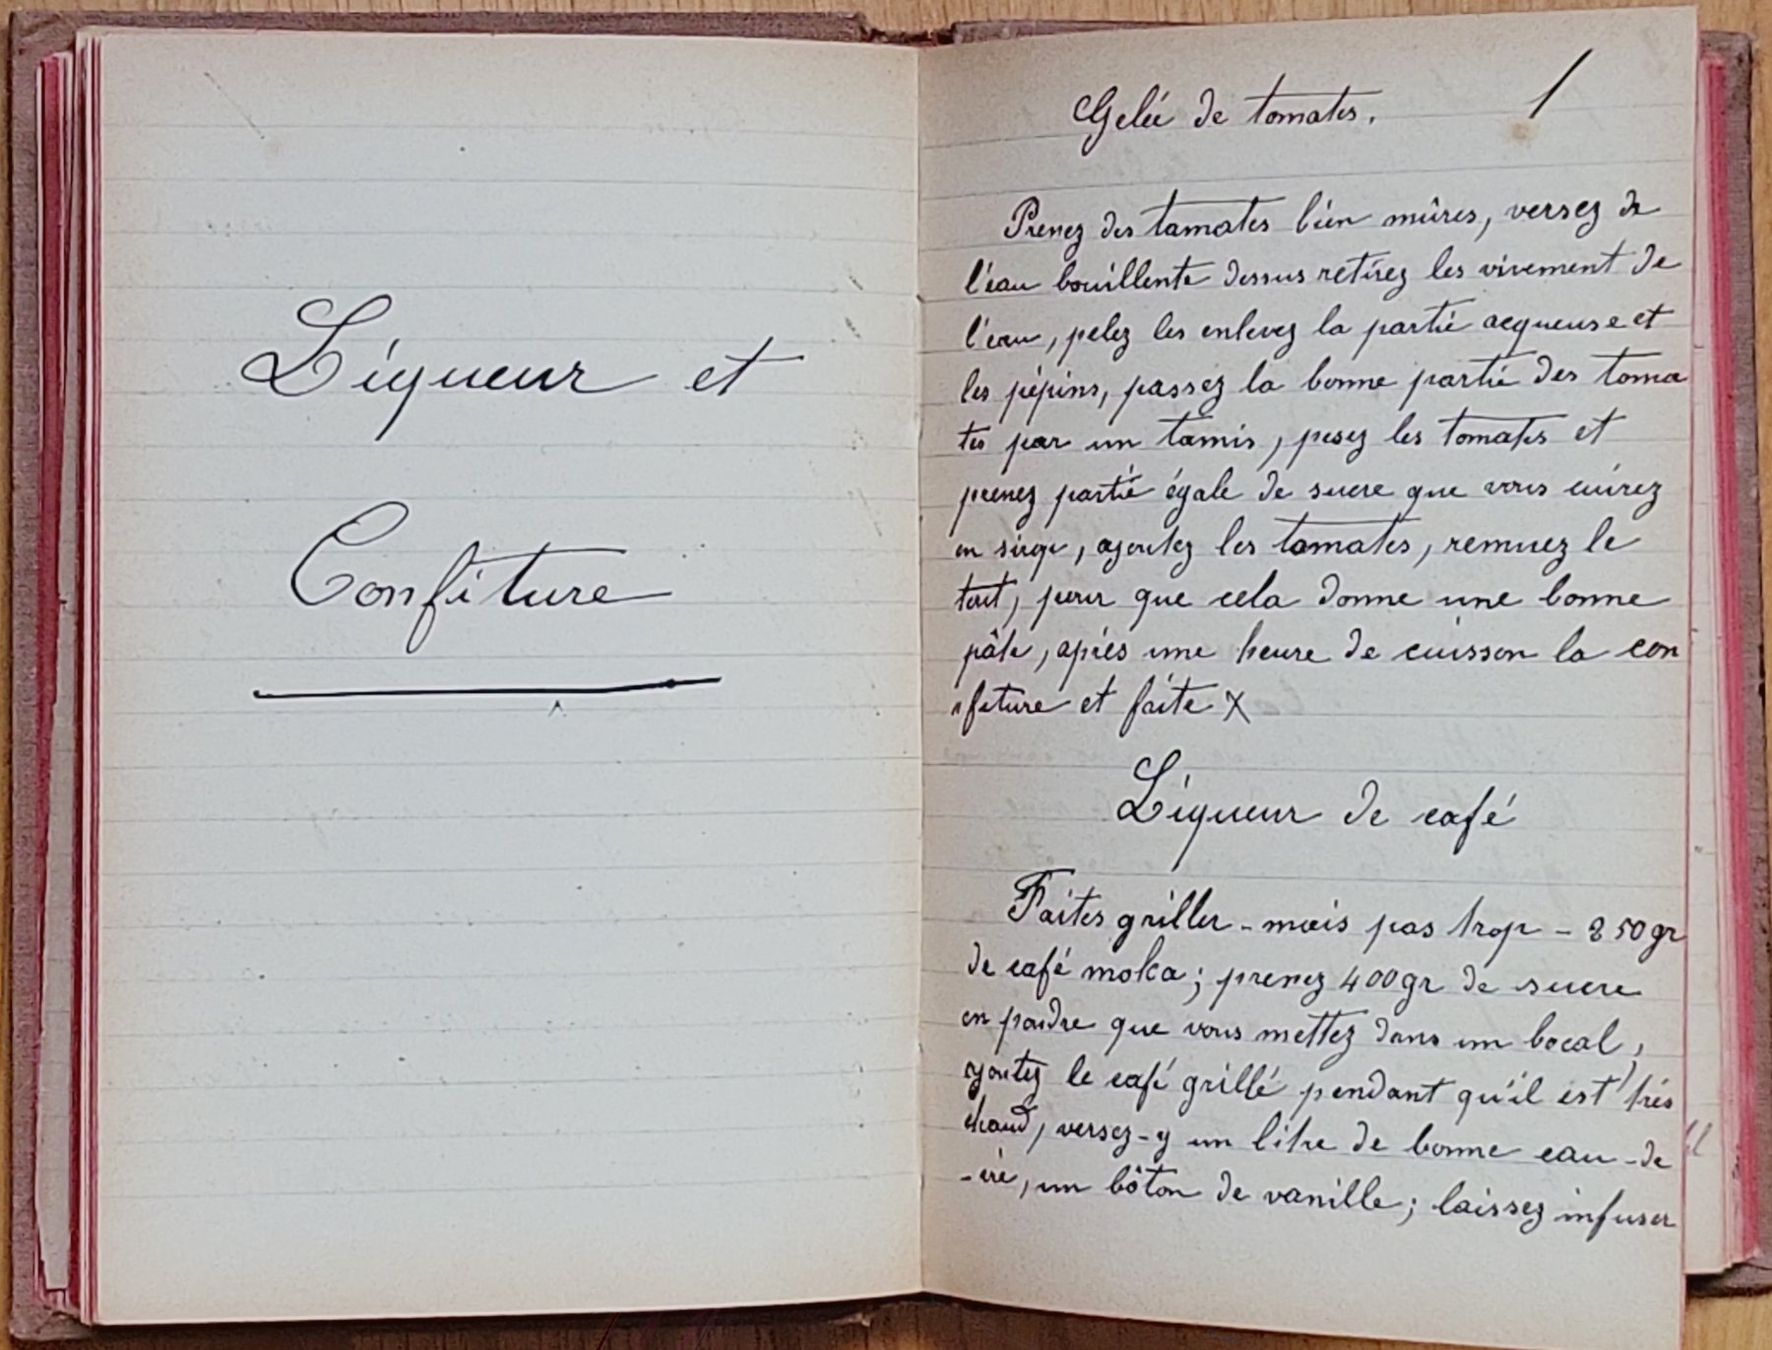 Liqueur et
Confiture
1
Gelée de tomates.
Prenez des tamates bien mûres, versez de
l'eau bouillente dessus retirez les vivement de
l'eau, pelez les enlevez la partie acqueuse et
les pépins, passez la bonne partie des toma
tes par un tamis, pesez les tomates et
prenez partie égale de sucre que vous cuirez
en sirop, ajoutez les tomates, remuez le
tout, pour que cela donne une bonne
pâte, après une heure de cuisson la con
fiture et faite X
Liqueur de café
Faites griller - mais pas trop - 250gr
de café moka; prenez 400gr de sucre
en poudre que vous mettez dans un bocal,
ajoutez le café grillé pendant qu'il est très
chaud, versez-y un litre de bonne eau-de
-vie, un bâton de vanille; laissez infuser